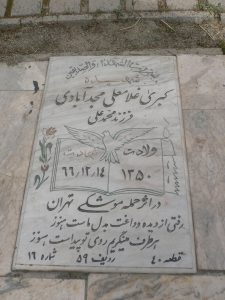 شهیده
کبری غلامعلی مجدآبادی
فرزند محمد علی
ولادت
شهادت
۱۳۵۰
۶۶/۱۲/۱۴
در اثر حمله موشکی تهران
رفتی از دیده و داغت به دل ماست هنوز
هر طرف مینگرم روی تو پیداست هنوز
قطعه ۴۰ ردیف ۵۹ شماره ۱۶